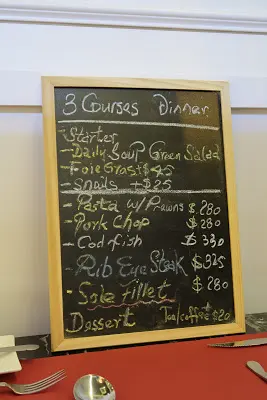 3 Courses Dinner
-Starter
-Daily Soup Green Salad
-Foie Gras+$45
-Snails +$25
-Pasta w/Prawns $280
-Pork Chop $280
-Codfish $330
-Rib Eye Steak $325
-Sole Fillet $280
Dessert Tea/coffee+$20